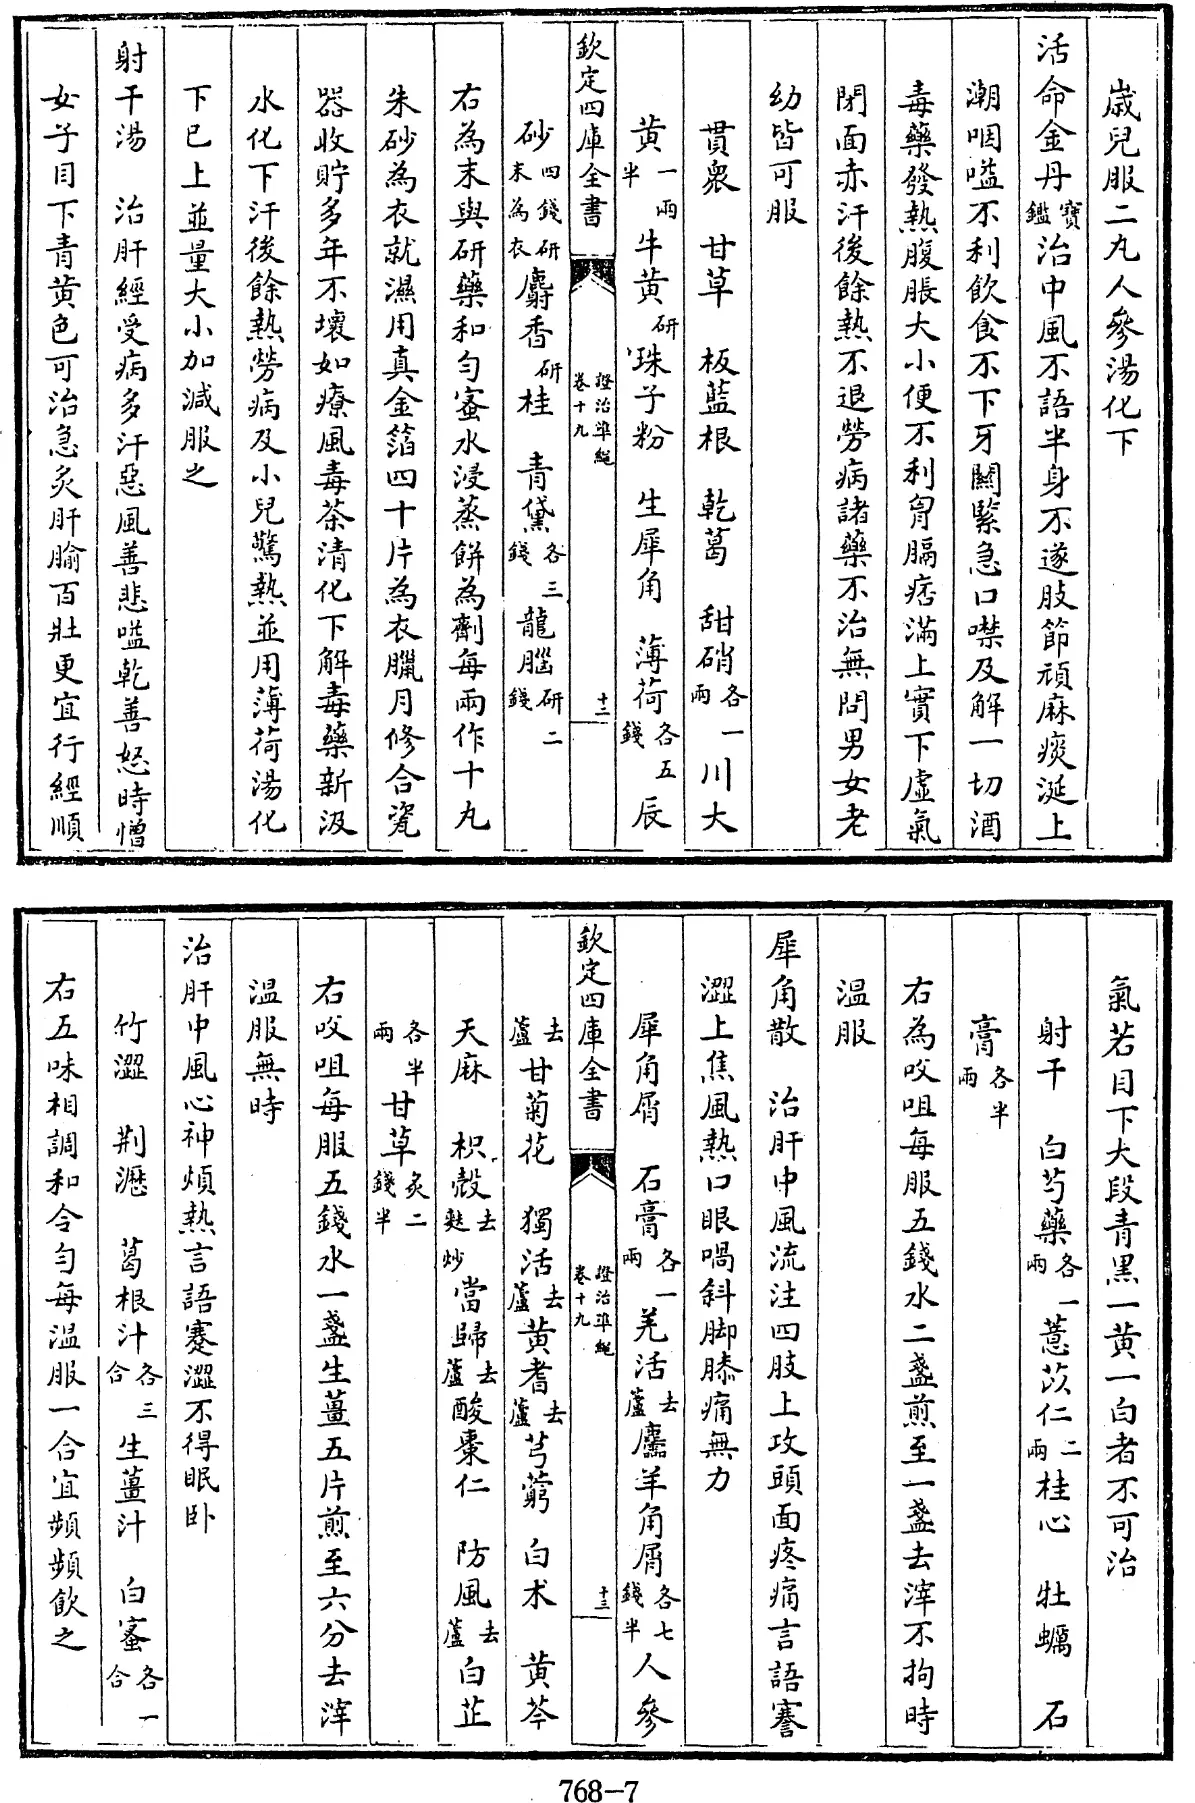 歲兒服二丸人參湯化下
活命金丹寶鑑治中風不語半身不遂肢節頑麻痰涎上
潮咽嗌不利飲食不下牙關緊急口噤及解一切酒
毒藥發熱腹脹大小便不利胷膈痞滿上實下虛氣
閉面赤汗後餘熱不退勞病諸藥不治無問男女老
幼皆可服
貫衆 甘草 板藍根 乾葛 甜硝各一兩川大
黃一兩半牛黃研珠子粉 生犀角 薄荷各五錢辰
欽定四庫全書 證治準繩卷十九 十二
砂四錢研末為衣麝香研桂 青黛各三錢龍腦研二錢
右為末與研藥和勻蜜水浸蒸餅為劑每兩作十丸
朱砂為衣就濕用真金箔四十片為衣臘月修合瓷
器收貯多年不壞如療風毒茶清化下解毒藥新汲
水化下汗後餘熱勞病及小兒驚熱並用薄荷湯化
下已上並量大小加減服之
射干湯 治肝經受病多汗惡風善悲嗌乾善怒時憎
女子目下青黃色可治急灸肝腧百壯更宜行經順
氣若目下大段青黑一黃一白者不可治
射干 白芍藥各一兩薏苡仁二兩桂心 牡蠣 石
膏各半兩
右為㕮咀每服五錢水二盞煎至一盞去滓不拘時
温服
犀角散 治肝中風流注四肢上攻頭面疼痛言語蹇
澀上焦風熱口眼喎斜脚膝痛無力
犀角屑 石膏各一兩羌活去蘆羚羊角屑各七錢半人參
欽定四庫全書 證治準繩卷十九 十三
去蘆甘菊花 獨活去蘆黃耆去蘆芎藭 白术 黃芩
天麻 枳殼去麩炒當歸去蘆酸棗仁 防風去蘆白芷
各半兩甘草炙二錢半
右㕮咀每服五錢水一盞生薑五片煎至六分去滓
温服無時
治肝中風心神煩熱言語蹇澀不得眠卧
竹瀝 荆瀝 葛根汁各三合生薑汁 白蜜各一合
右五味相調和令勻每温服一合宜頻頻飲之
768-7